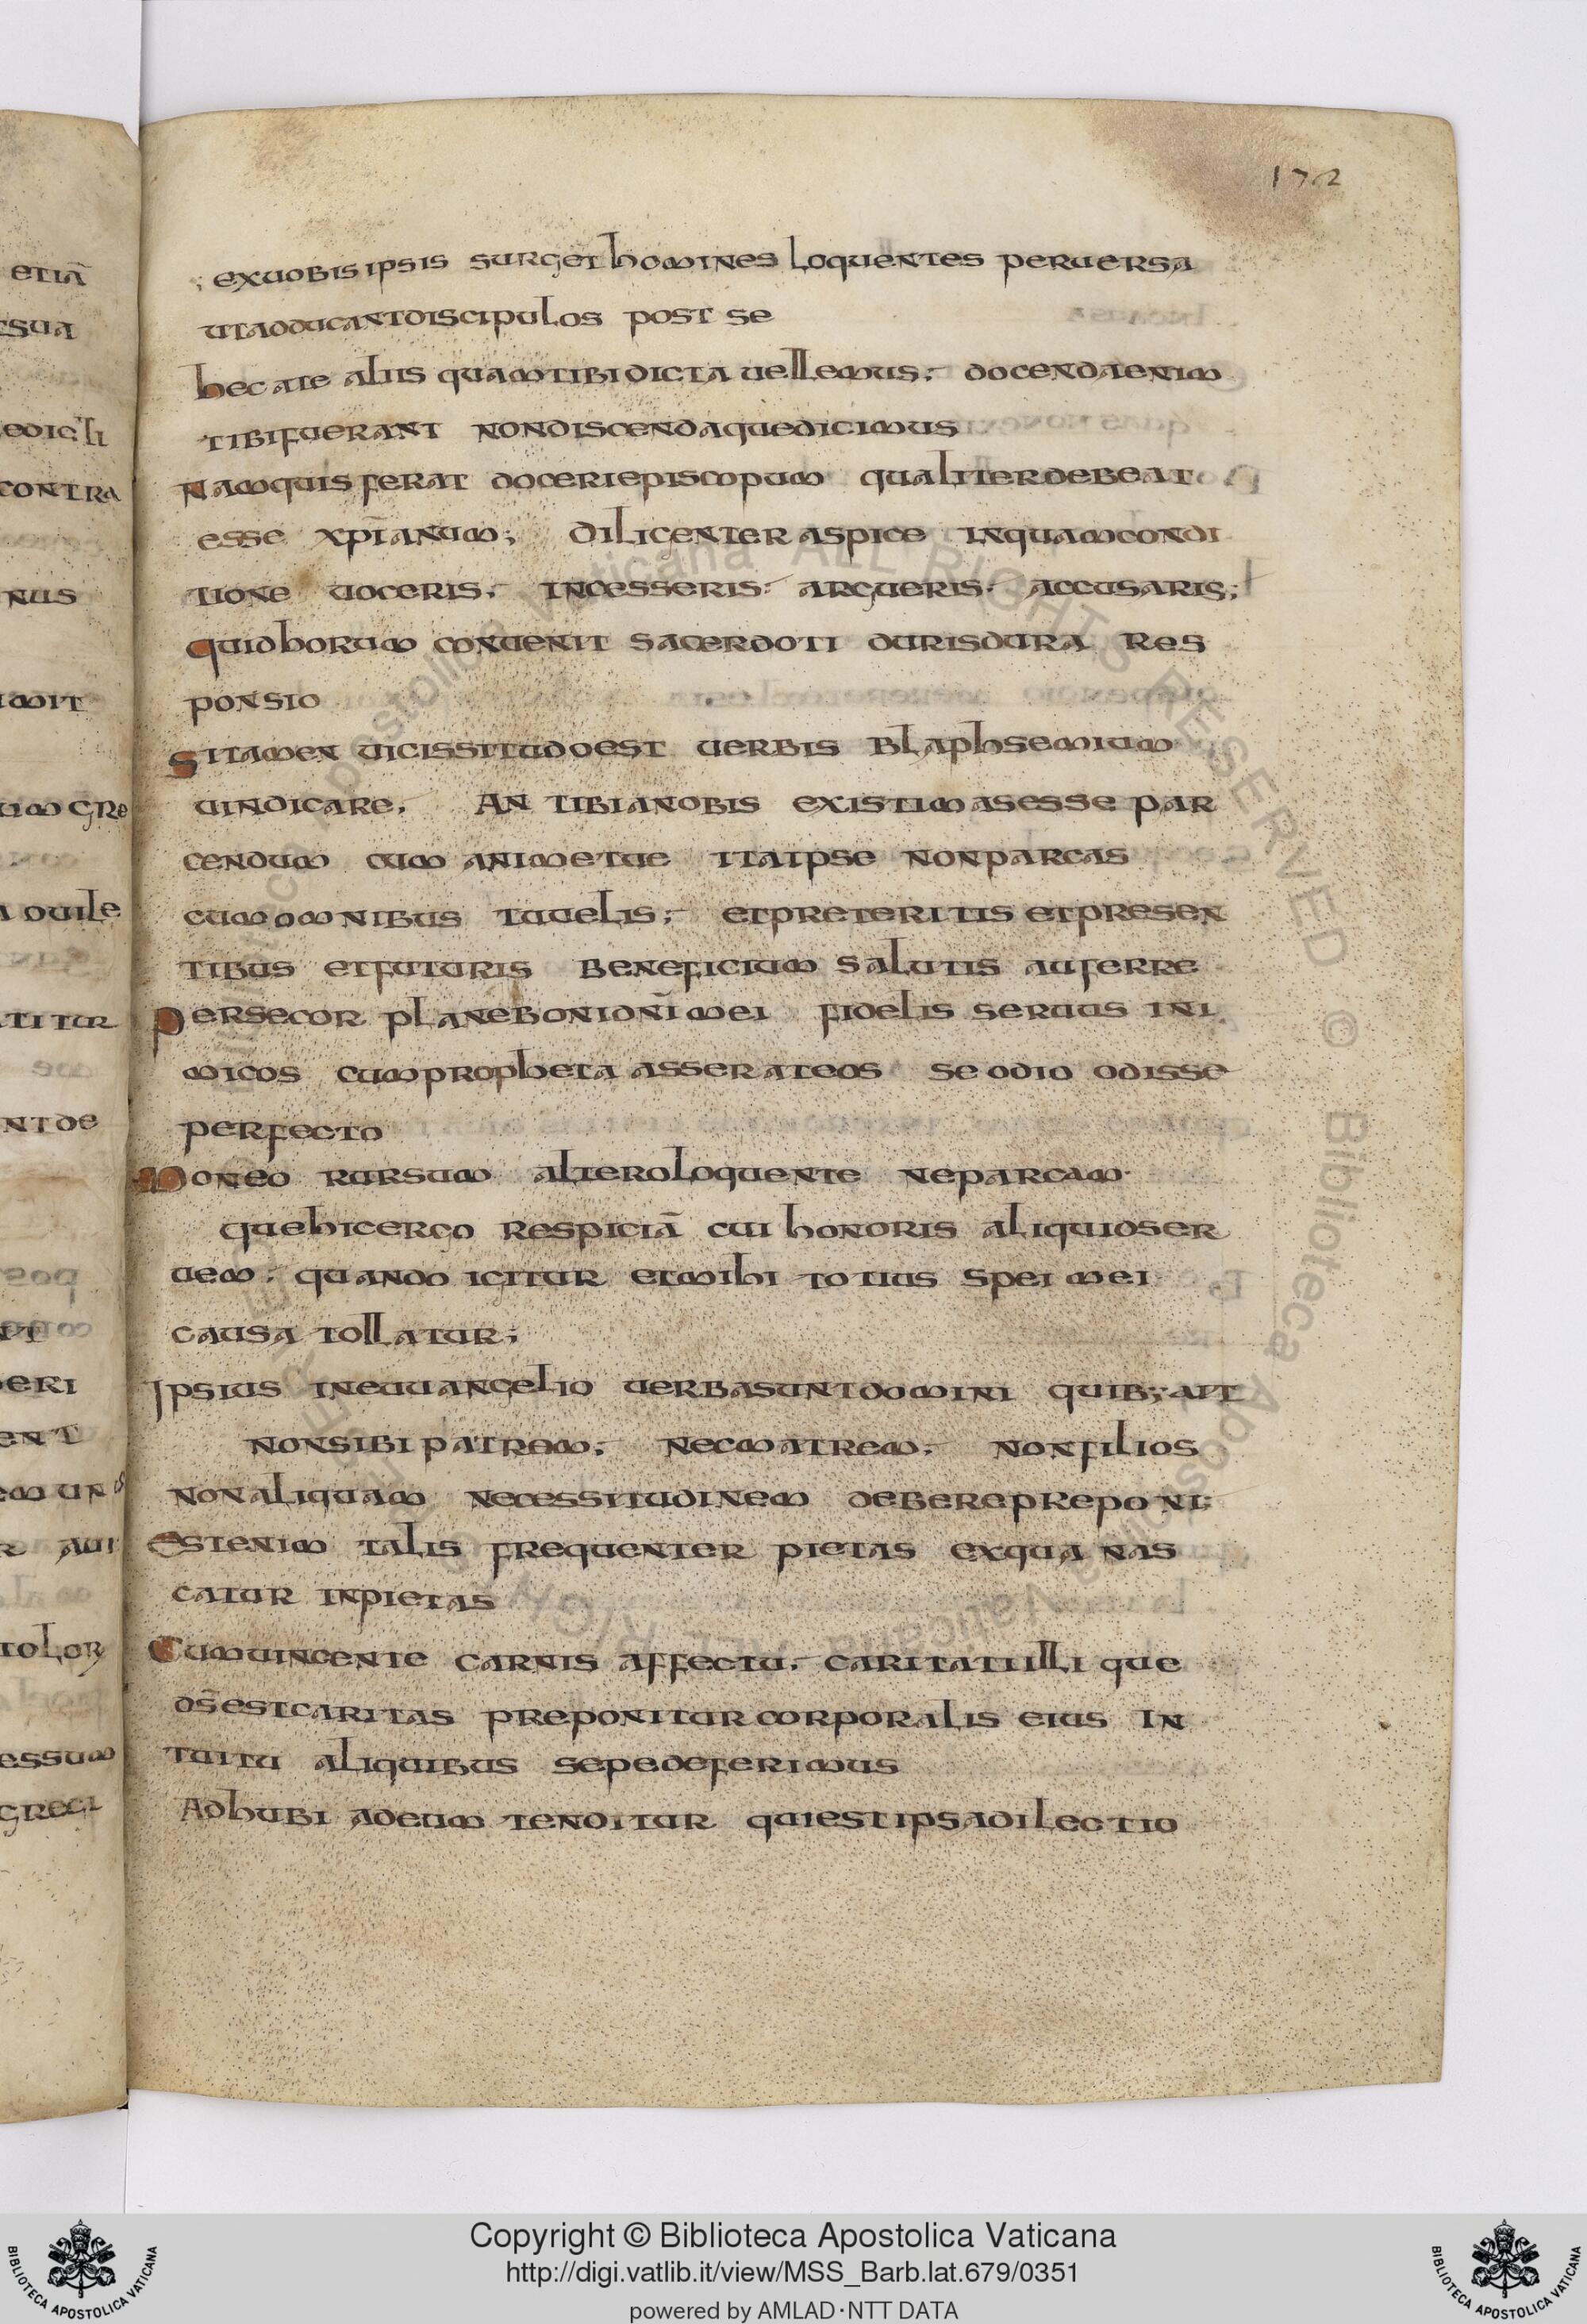 172
; exuobis ipsis surget homines loquentes peruersa
utadducantdiscipulos post se
hec a te aliis quamtibi dicta uellemus; docenda enim
tibi fuerant non discenda que dicimus
Nam quis ferat doceri episcopum qualiter debeat
esse xp̄ianum; diligenter aspice inquam condi
tione uoceris; incesseris; argueris; accusaris;
quid horum conuenit sacerdoti duris dura res
ponsio
Si tamen uicissitudo est uerbis blaphsemium
uindicare. An tibi a nobis existimas esse par
cendum cum anime tue ita ipse non parcas
cum omnibus tu uelis; et preteritis et presen
tibus et futuris beneficium salutis auferre
Persecor plane boni dn̄i mei fidelis seruus ini
micos cum propheta asserateos se odio odisse
perfecto
Moneo rursum altero loquente ne parcam
que hic ergo respiciā cui honoris aliquid ser
uem; quando igitur et mihi totius spei mei
causa tollatur;
Ipsius in euuangelio uerba sunt domini quib; ait
non sibi patrem; nec matrem; non filios
non aliquam necessitudinem debere preponi;
Est enim talis frequenter pietas ex qua nas
catur inpietas
Cum uincente carnis affectu; caritati illi que
ds̄ est caritas preponitur corporalis eius in
tuitu aliquibus sepe deferimus
Adhubi ad eum tenditur qui est ipsa dilectio
etiā
sua
contra
nus
mit
um gre
ouile
titur
nt de
eri
ent
essum
gregi
Copyright © Biblioteca Apostolica Vaticana
http://digi.vatlib.it/view/MSS_Barb.lat.679/0351
powered by AMLAD·NTT DATA
BIBLIOTECA APOSTOLICA VATICANA
BIBLIOTECA APOSTOLICA VATICANA